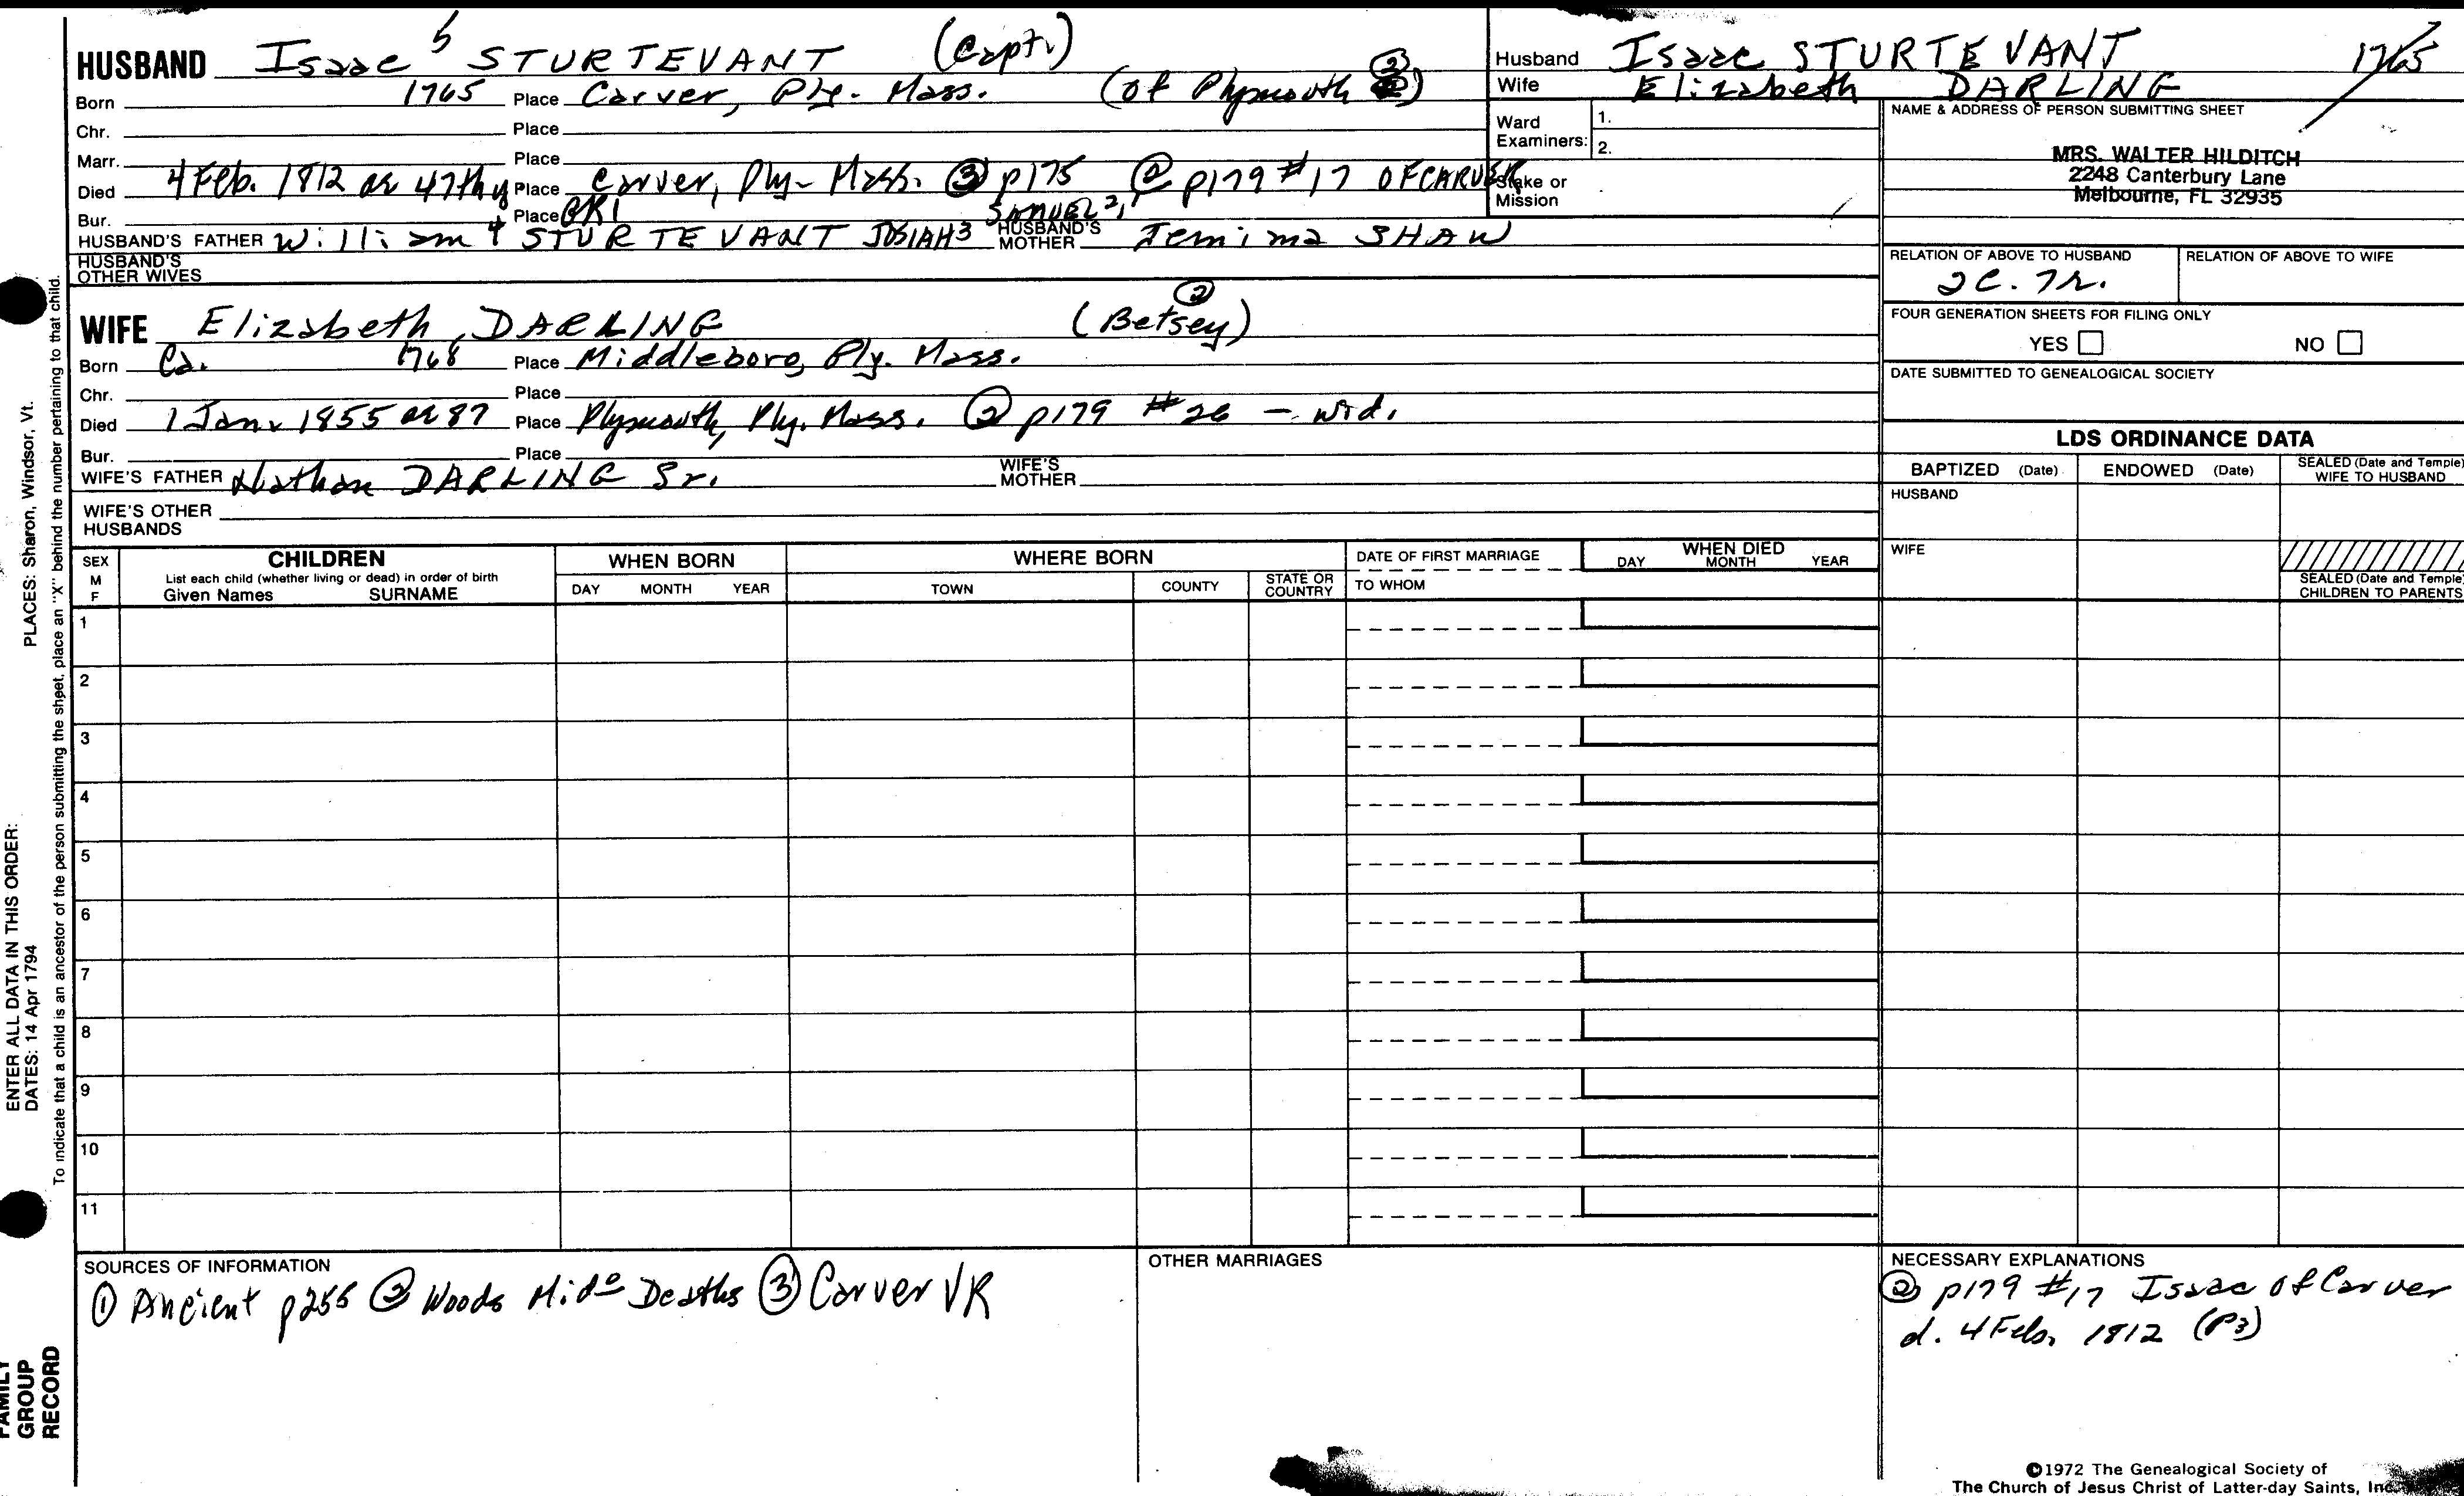 HUSBAND Isaac 5 STURTEVANT (Capt.)
Born 1765 Place Carver, Ply. Mass. (of Plymouth ②)
Chr. Place
Marr. Place
Died 4 Feb. 1812 ae 47th y Place Carver, Ply. Mass. ③ p175 ② p179 #17 OF CARVER
Bur. Place GR1
HUSBAND'S FATHER William 4 STURTEVANT JOSIAH 3 SAMUEL 2, HUSBAND'S MOTHER Jemima SHAW
HUSBAND'S OTHER WIVES
WIFE Elizabeth DARLING (Betsey) ②
Born Ca. 1768 Place Middleboro, Ply. Mass.
Chr. Place
Died 1 Jan. 1855 ae 87 Place Plymouth, Ply. Mass. ② p179 #26 – wid.
Bur. Place
WIFE'S FATHER Nathan DARLING Sr. WIFE'S MOTHER
WIFE'S OTHER HUSBANDS
Husband Isaac STURTEVANT 1765
Wife Elizabeth DARLING
Ward Examiners: 1.
2.
Stake or Mission
NAME & ADDRESS OF PERSON SUBMITTING SHEET
MRS. WALTER HILDITCH
2248 Canterbury Lane
Melbourne, FL 32935
RELATION OF ABOVE TO HUSBAND RELATION OF ABOVE TO WIFE
2C. 7r.
FOUR GENERATION SHEETS FOR FILING ONLY
YES NO
DATE SUBMITTED TO GENEALOGICAL SOCIETY
LDS ORDINANCE DATA
BAPTIZED (Date) ENDOWED (Date) SEALED (Date and Temple) WIFE TO HUSBAND
HUSBAND
WIFE
SEALED (Date and Temple) CHILDREN TO PARENTS
SEX M F
CHILDREN
List each child (whether living or dead) in order of birth
Given Names SURNAME
WHEN BORN
DAY MONTH YEAR
WHERE BORN
TOWN COUNTY STATE OR COUNTRY
DATE OF FIRST MARRIAGE
TO WHOM
WHEN DIED
DAY MONTH YEAR
1
2
3
4
5
6
7
8
9
10
11
SOURCES OF INFORMATION
① Ancient p255 ② Woods Mido Deaths ③ Carver VR
OTHER MARRIAGES
NECESSARY EXPLANATIONS
② p179 #17 Isaac of Carver
d. 4 Feb. 1812 (P3)
©1972 The Genealogical Society of
The Church of Jesus Christ of Latter-day Saints, Inc.
PLACES: Sharon, Windsor, Vt.
To indicate that a child is an ancestor of the person submitting the sheet, place an "X" behind the number pertaining to that child.
ENTER ALL DATA IN THIS ORDER:
DATES: 14 Apr 1794
FAMILY
GROUP
RECORD